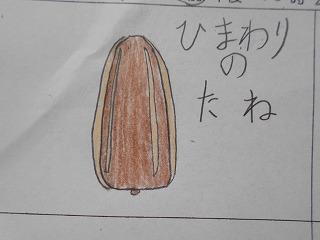 ひまわり
の
たね